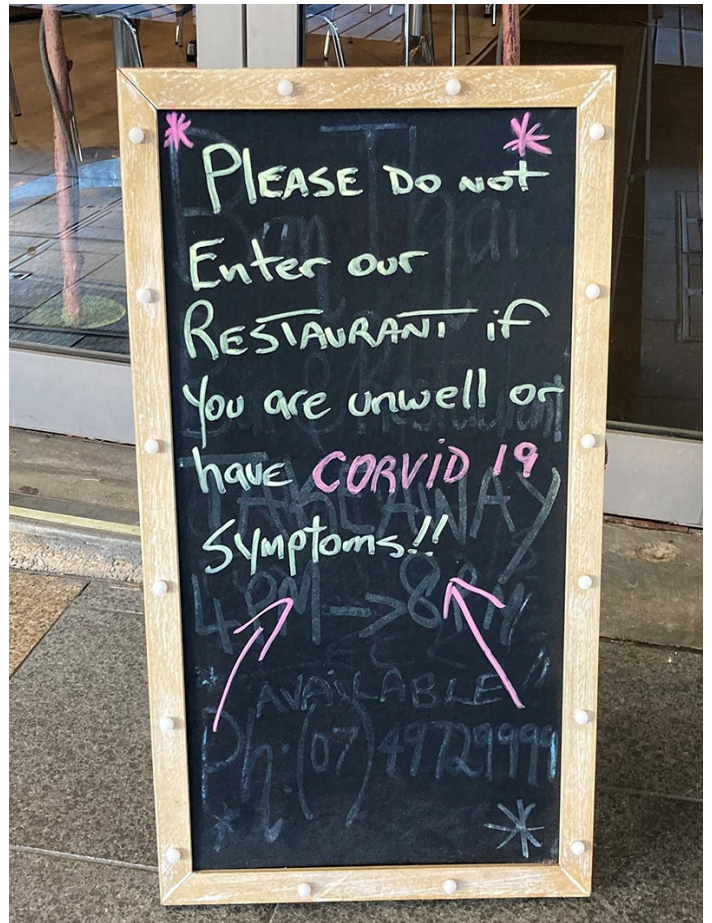 PLEASE DO NOT
Enter our
RESTAURANT if
you are unwell or
have CORVID 19
Symptoms!!
TAKEAWAY
4PM -> 8PM
AVAILABLE
Ph: (07) 49729999